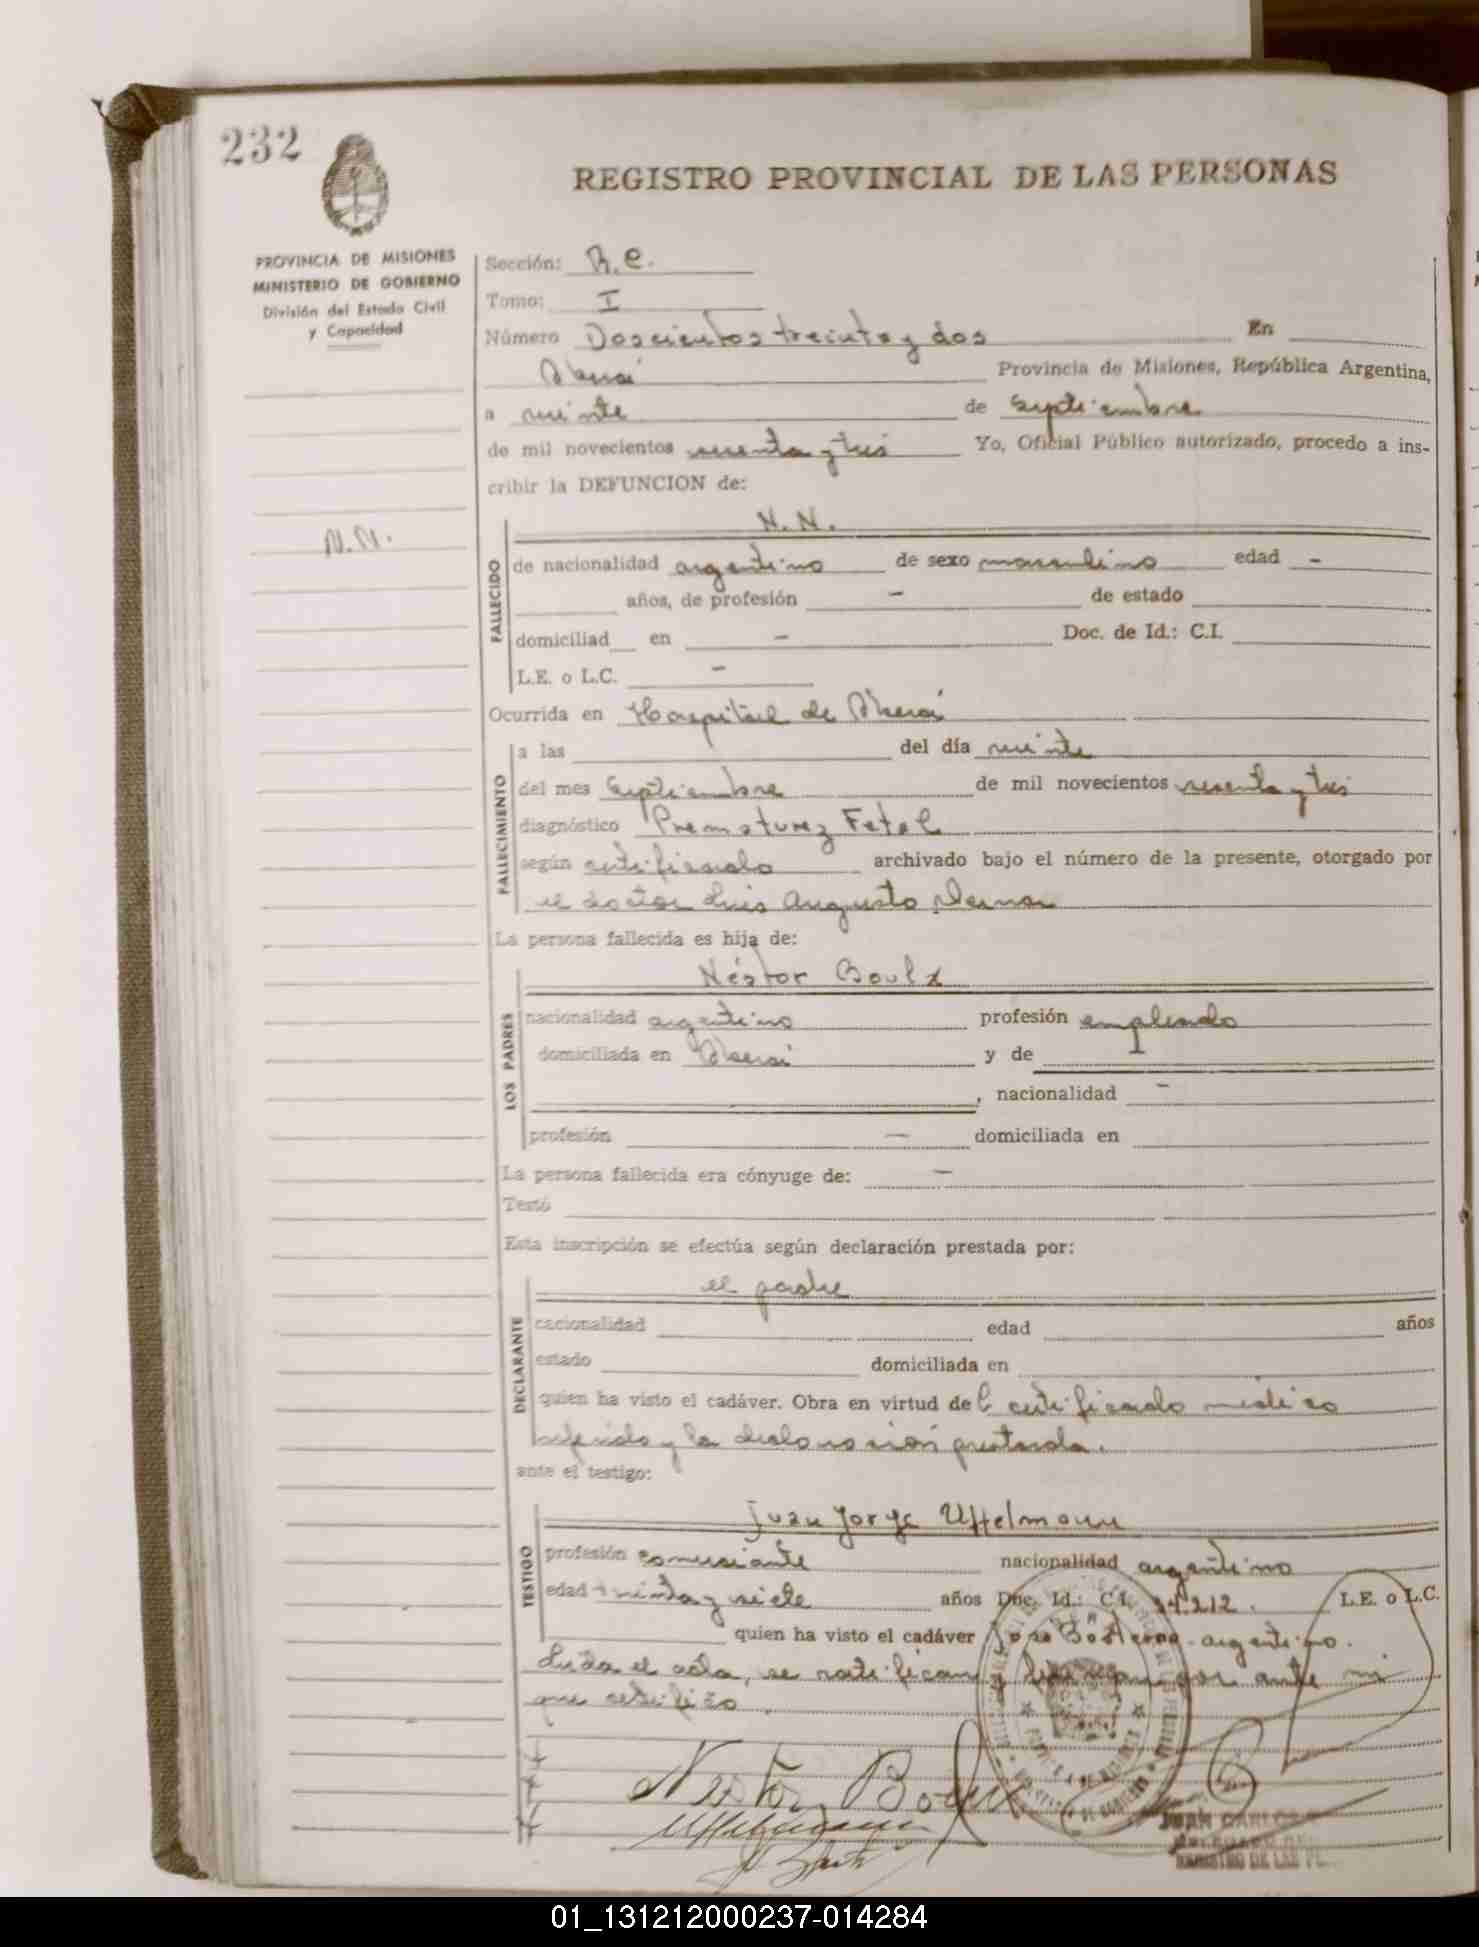 232
REGISTRO PROVINCIAL DE LAS PERSONAS
PROVINCIA DE MISIONES
MINISTERIO DE GOBIERNO
División del Estado Civil
y Capacidad
Sección: R.e.
Tomo: I
Número Doscientos treinta y dos En
Oberá Provincia de Misiones, República Argentina,
a veinte de Septiembre
de mil novecientos sesenta y tres Yo, Oficial Público autorizado, procedo a ins-
cribir la DEFUNCION de:
N.N.
N.N.
FALLECIDO
de nacionalidad argentino de sexo masculino edad -
años, de profesión - de estado
domiciliad en - Doc. de Id.: C.I.
L.E. o L.C. -
Ocurrida en Hospital de Oberá
FALLECIMIENTO
a las del día veinte
del mes Septiembre de mil novecientos sesenta y tres
diagnóstico Prematurez Fetal
según certificado archivado bajo el número de la presente, otorgado por
el doctor Luis Augusto
La persona fallecida es hija de:
LOS PADRES
Néstor Boulx
nacionalidad argentino profesión empleado
domiciliada en Oberá y de
, nacionalidad -
profesión - domiciliada en
La persona fallecida era cónyuge de: -
Testó
Esta inscripción se efectúa según declaración prestada por:
DECLARANTE
el padre
cacionalidad edad años
estado domiciliada en
quien ha visto el cadáver. Obra en virtud del certificado médico
referido y la declaración prestada.
ante el testigo:
TESTIGO
Juan Jorge Uffelmann
profesión comerciante nacionalidad argentino
edad treinta y siete años Doc. Id.: C.I. L.E. o L.C.
quien ha visto el cadáver argentino.
Leída el acta, se ratifican y firman por ante mí
que certifico.
Nestor
JUAN CARLOS
REGISTRO DE LAS
01_131212000237-014284